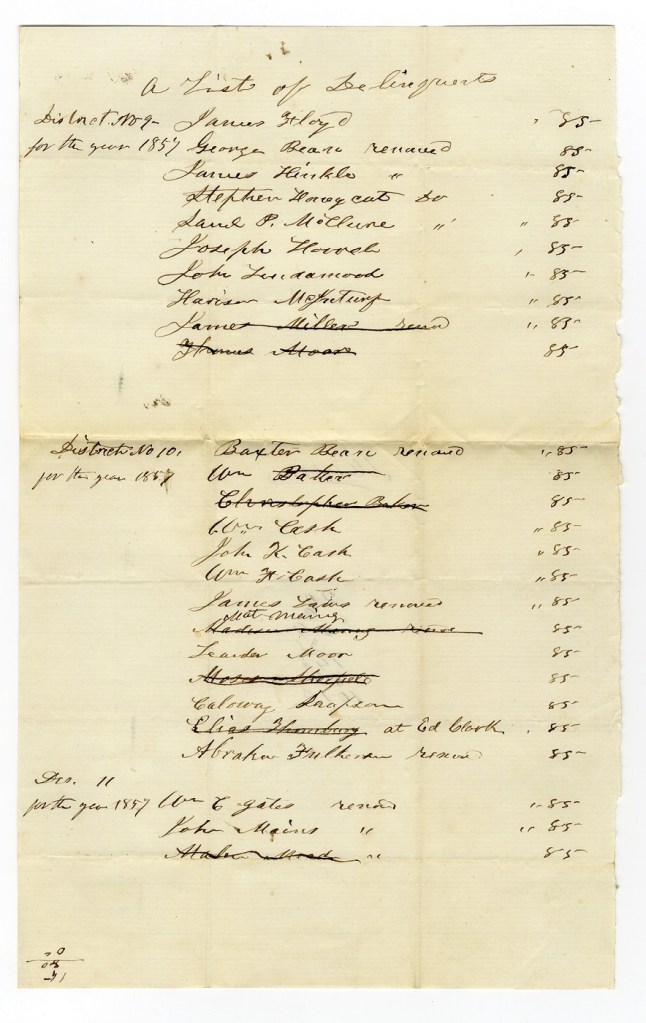 A List of Delinquents
District No 9 James Floyd " 85
for the year 1857 George Bean removed 85
James Hinkle " 85
Stephen Honeycut Do 85
Saml P. McClure " " 85
Joseph Houch , 85
John Lindamood " 85
Harison McInturf " 85
James Miller remd " 85
Thomas Moore 85
District No 10, Baxter Bean removed " 85
for the year 1857 Wm Baker 85
Christopher Baker 85
Wm Cash " 85
John K. Cash " 85
Wm H. Cash " 85
James Laws removed " 85
Mat Maing
Madison 85
Leander Moor 85
Moses 85
Caloway Simpson 85
Elias Thornburg at Ed Clark . 85
Abraham Fulkerson removed 85
Dis. 11
for the year 1857 Wm C Gates remd " 85
John Mains " " 85
" 85